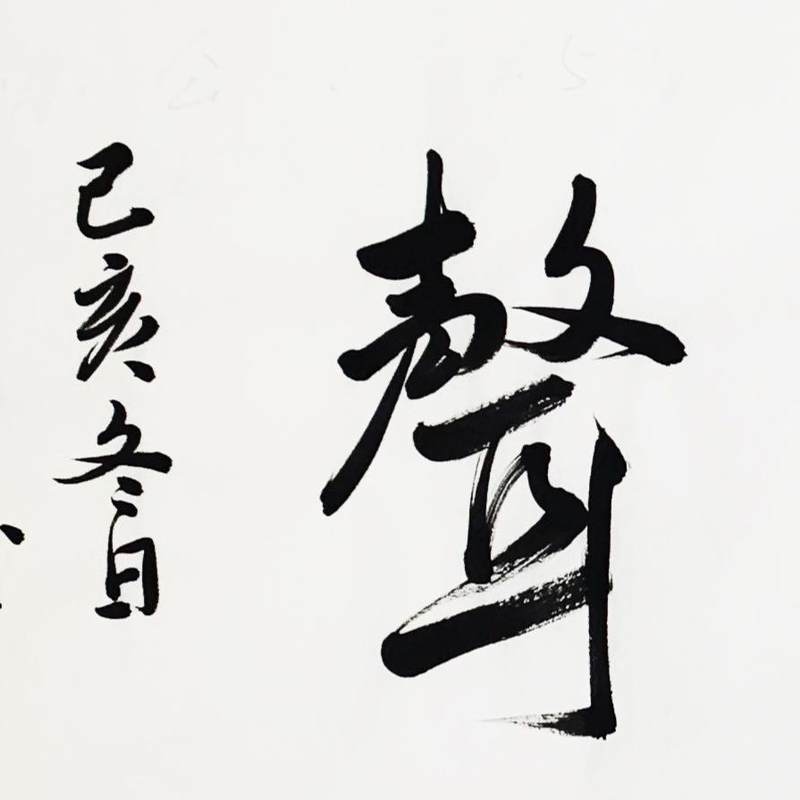 聲
己亥冬日